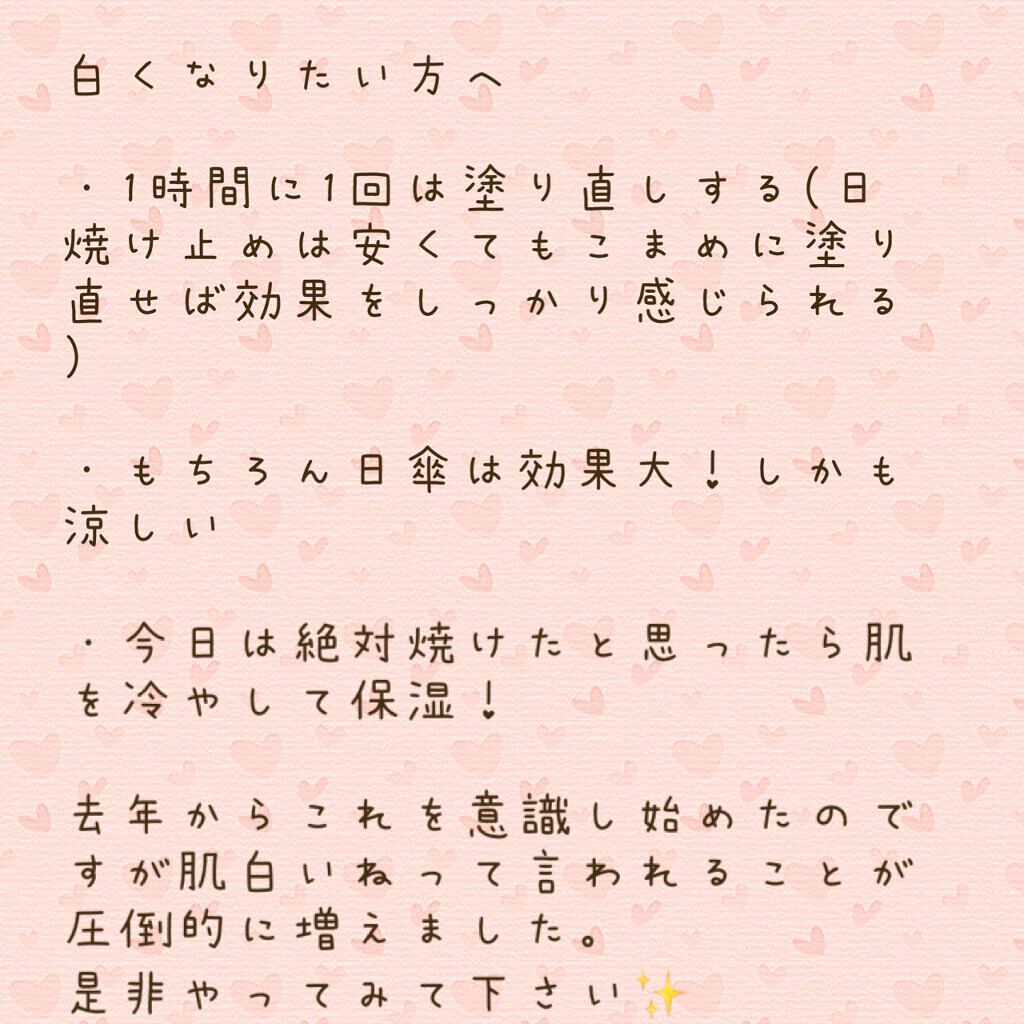 白くなりたい方へ
・1時間に1回は塗り直しする(日
焼け止めは安くてもこまめに塗り
直せば効果をしっかり感じられる
)
・もちろん日傘は効果大！しかも
涼しい
・今日は絶対焼けたと思ったら肌
を冷やして保湿！
去年からこれを意識し始めたので
すが肌白いねって言われることが
圧倒的に増えました。
是非やってみて下さい✨